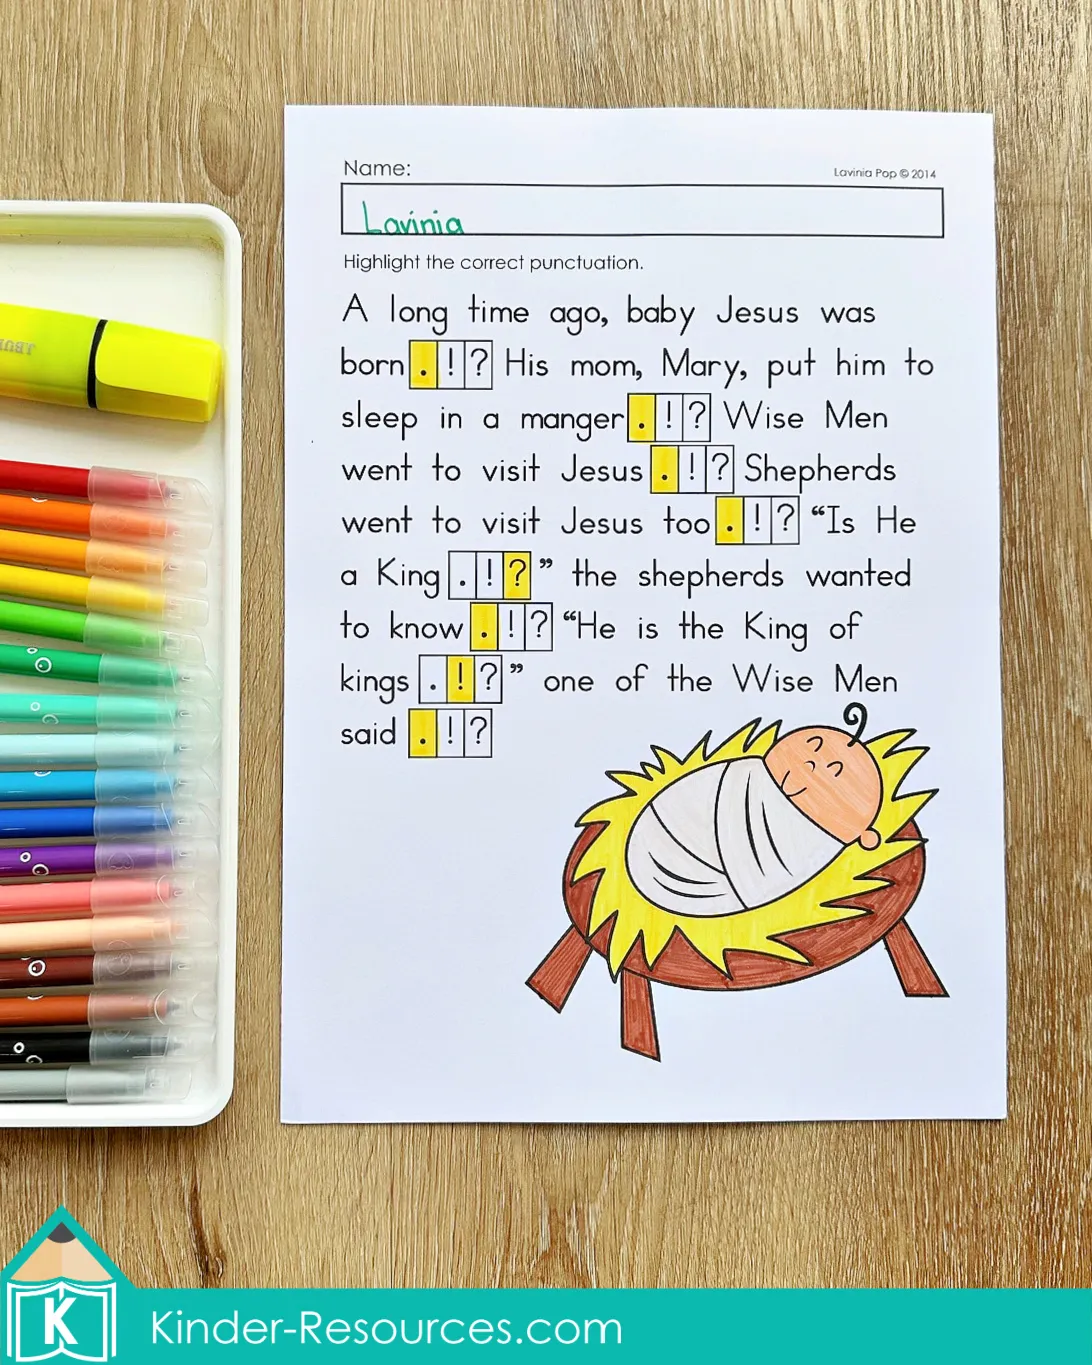 Name:
Lavinia Pop © 2014
Lavinia
Highlight the correct punctuation.
A long time ago, baby Jesus was
born . ! ? His mom, Mary, put him to
sleep in a manger . ! ? Wise Men
went to visit Jesus . ! ? Shepherds
went to visit Jesus too . ! ? “Is He
a King . ! ? ” the shepherds wanted
to know . ! ? “He is the King of
kings . ! ? ” one of the Wise Men
said . ! ?
K
Kinder-Resources.com